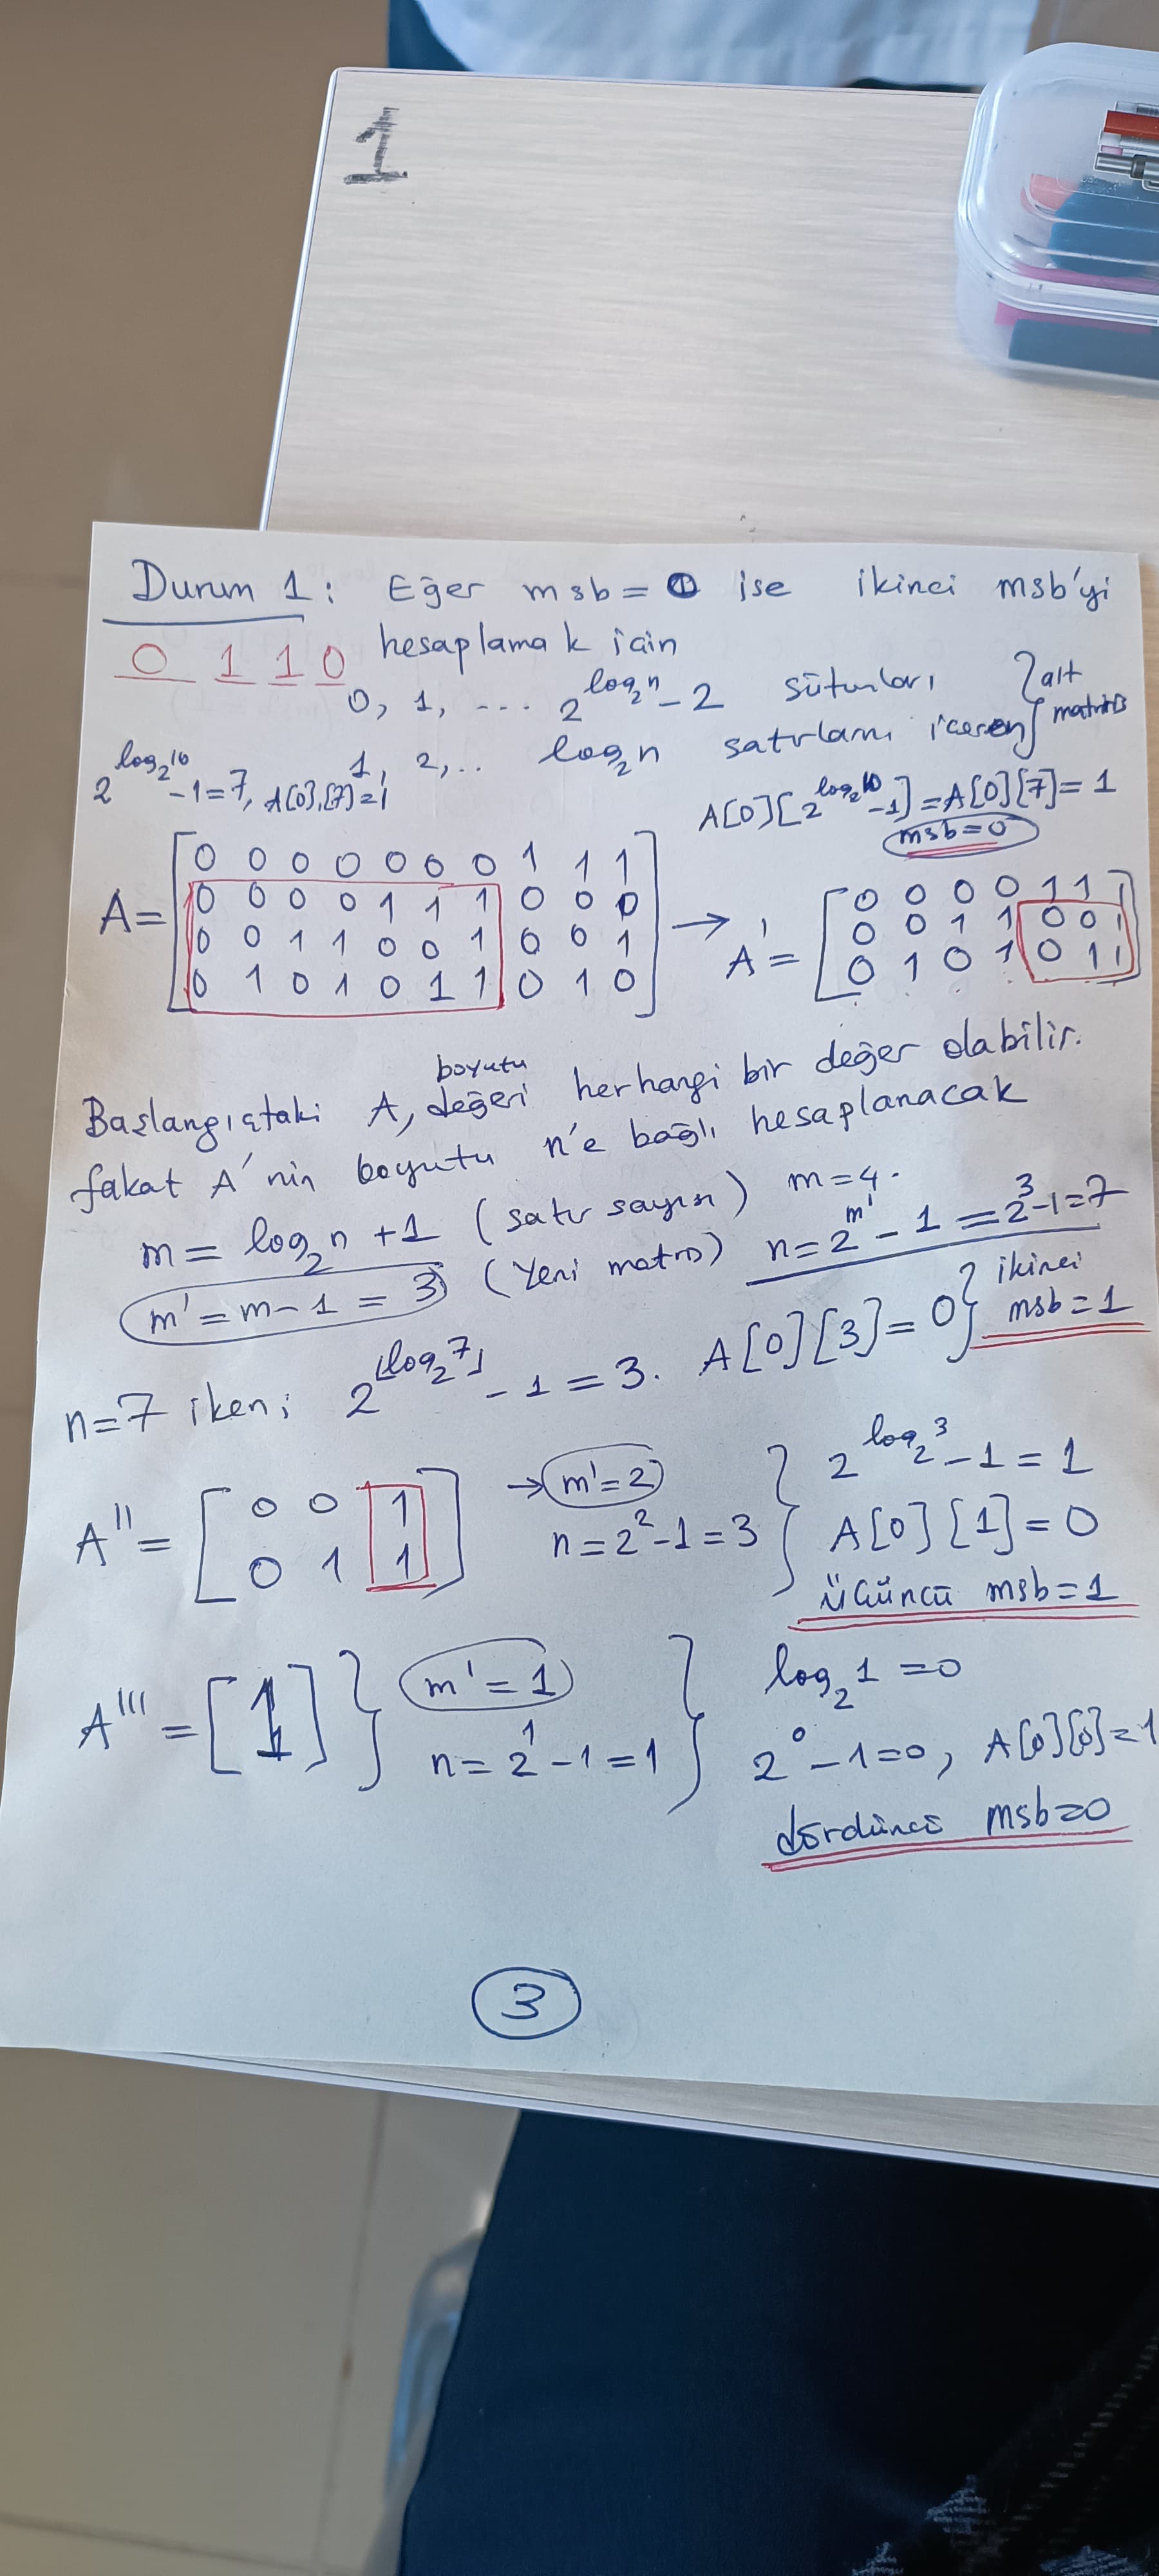 1
Durum 1: Eğer msb = 0 ise ikinci msb'yi
0 1 1 0 hesaplamak için
0, 1, ... 2^log₂n - 2 sütunları } alt
1, 2, .. log₂n satırlarını içeren } matris
2^log₂10 - 1 = 7, A[0],[7]=1
A[0][2^log₂10 - 1] = A[0][7] = 1
msb=0
A = [0 0 0 0 0 0 0 1 1 1
0 0 0 0 1 1 1 0 0 0
0 0 1 1 0 0 1 0 0 1
0 1 0 1 0 1 1 0 1 0]
→ A' = [0 0 0 0 1 1 1
0 0 1 1 0 0 1
0 1 0 1 0 1 1]
Başlangıçtaki A, değeri boyutu herhangi bir değer olabilir.
fakat A' nin boyutu n'e bağlı hesaplanacak
m = log₂n + 1 (satır sayısı) m = 4.
m' = m - 1 = 3 (Yeni matris) n = 2^m' - 1 = 2^3 - 1 = 7
n=7 iken; 2^⌊log₂7⌋ - 1 = 3. A[0][3] = 0 } ikinci msb = 1
A'' = [0 0 1
0 1 1]
→ m' = 2
n = 2^2 - 1 = 3
} 2^log₂3 - 1 = 1
A[0][1] = 0
üçüncü msb = 1
A''' = [1] } m' = 1
n = 2^1 - 1 = 1
} log₂1 = 0
2^0 - 1 = 0, A[0][0] = 1
dördüncü msb=0
3